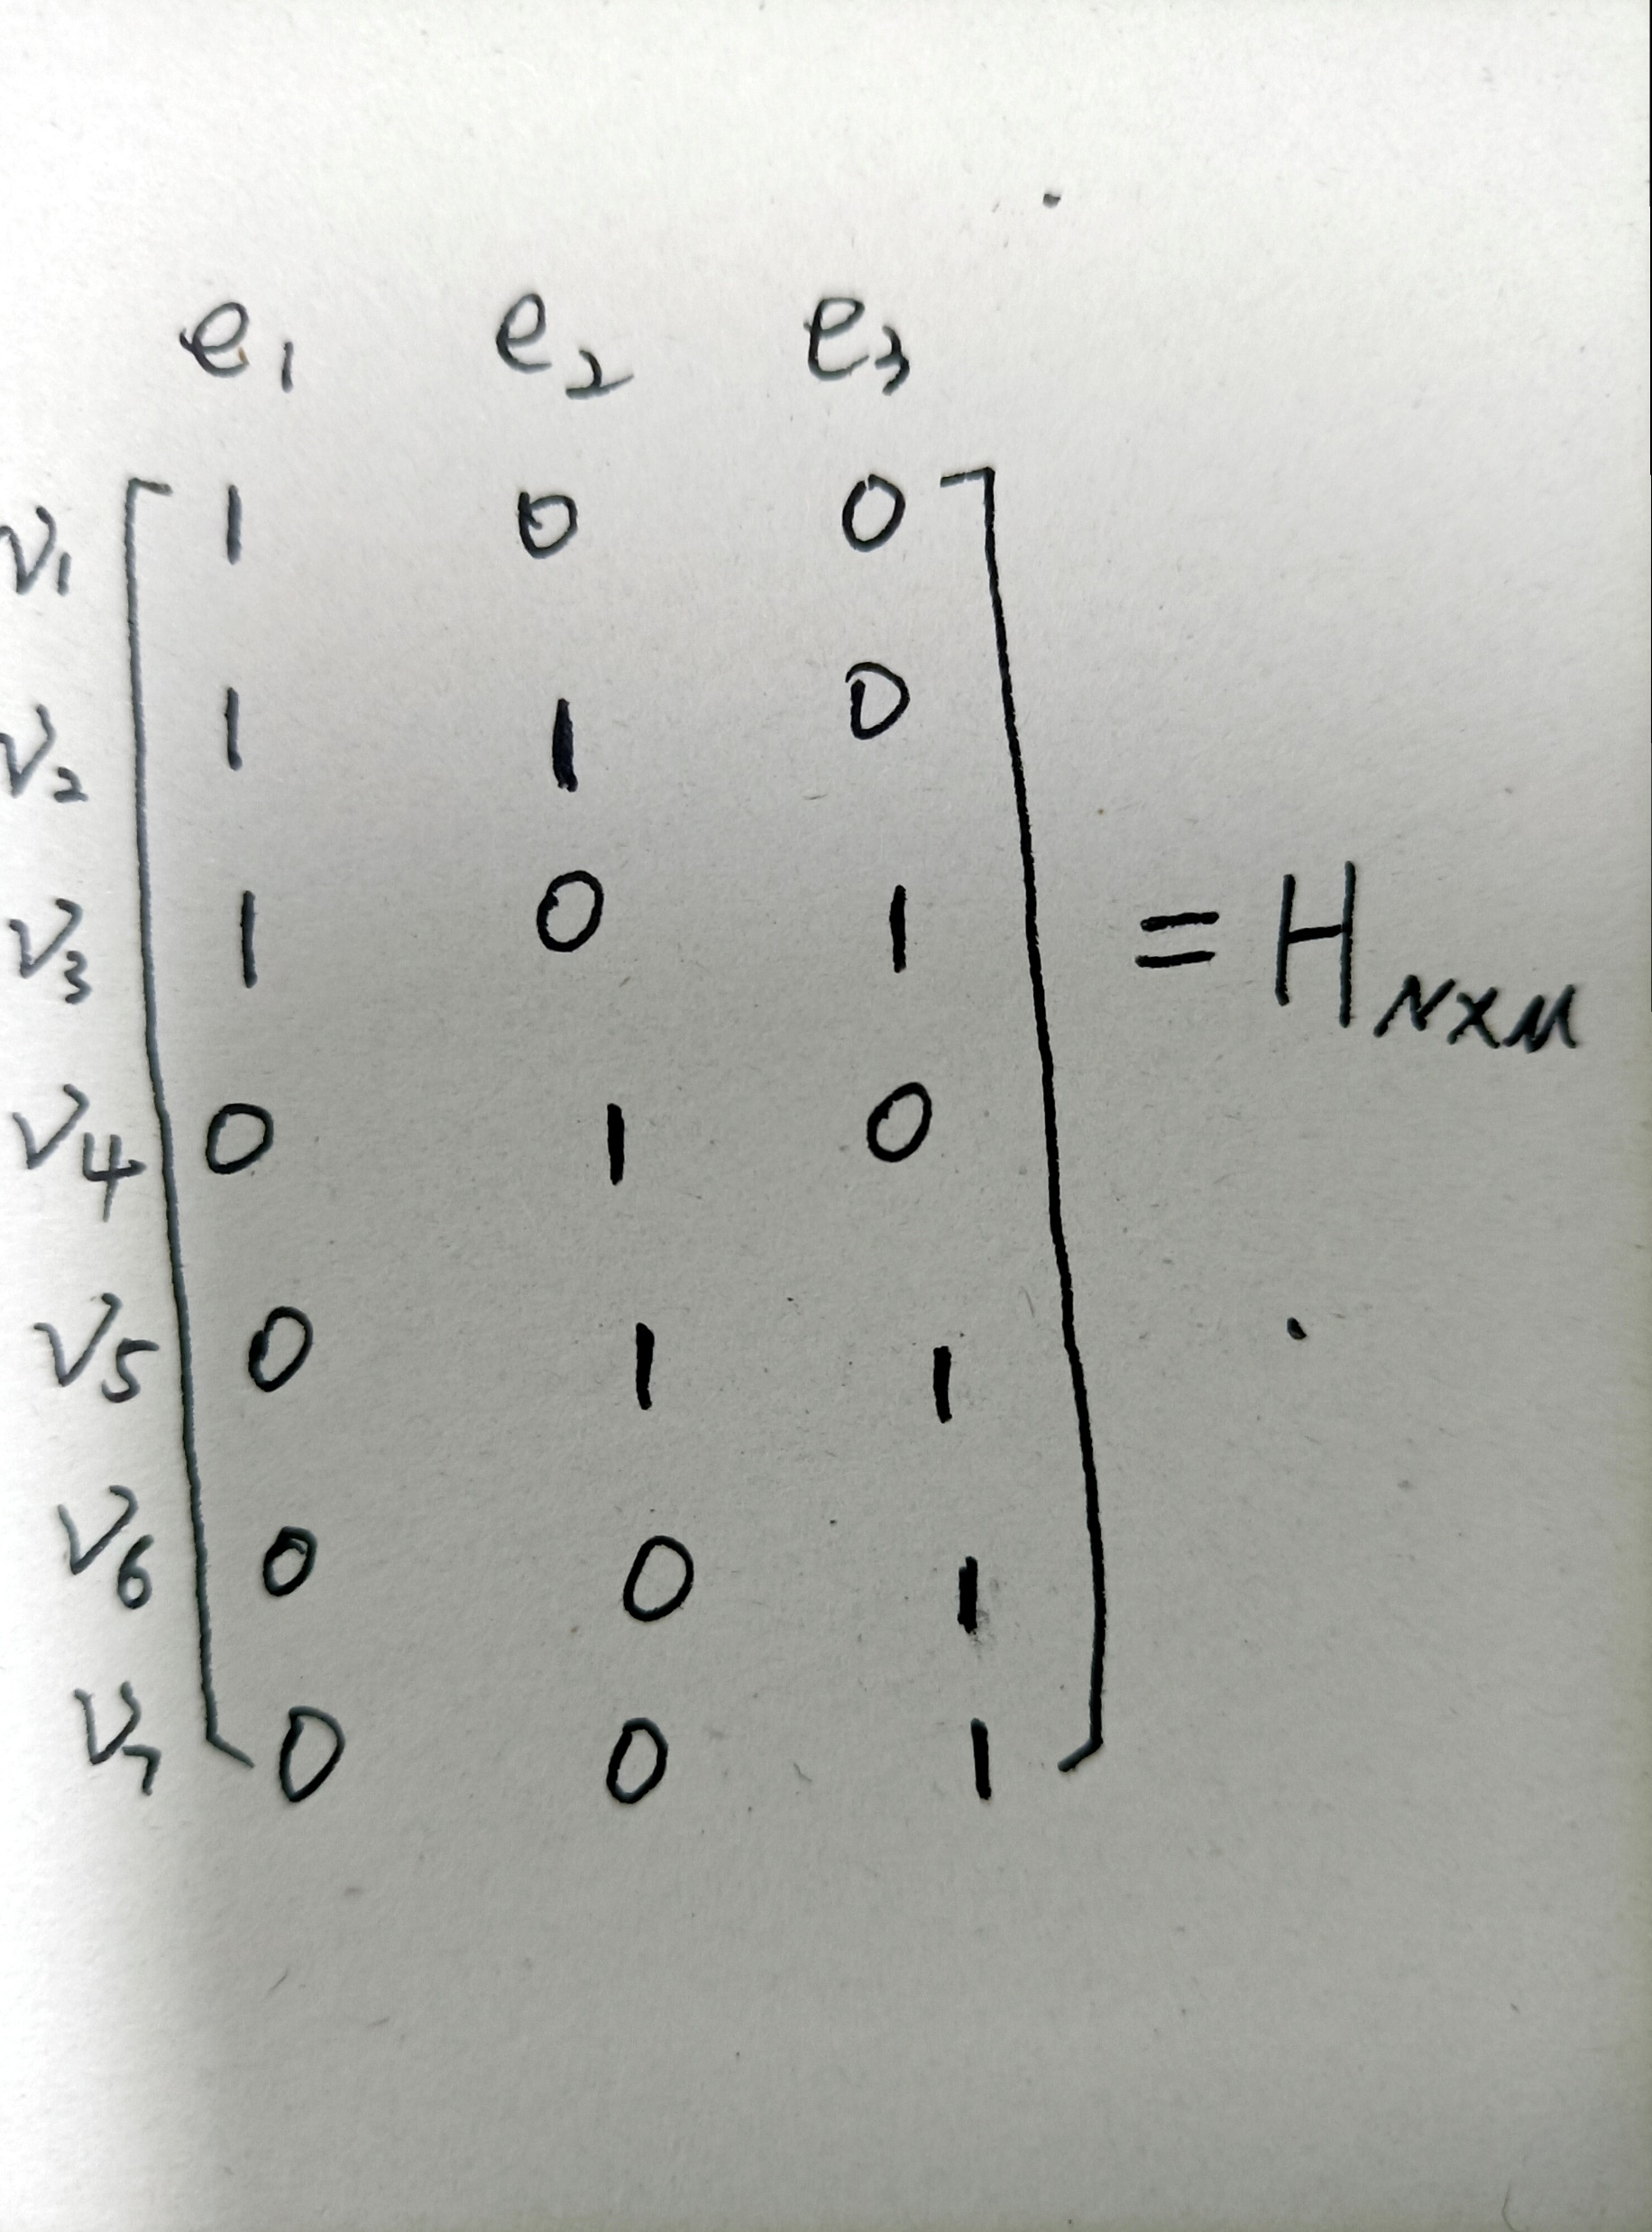 e₁ e₂ e₃
v₁ 1 0 0
v₂ 1 1 0
v₃ 1 0 1 = H_{N×M}
v₄ 0 1 0
v₅ 0 1 1
v₆ 0 0 1
v₇ 0 0 1